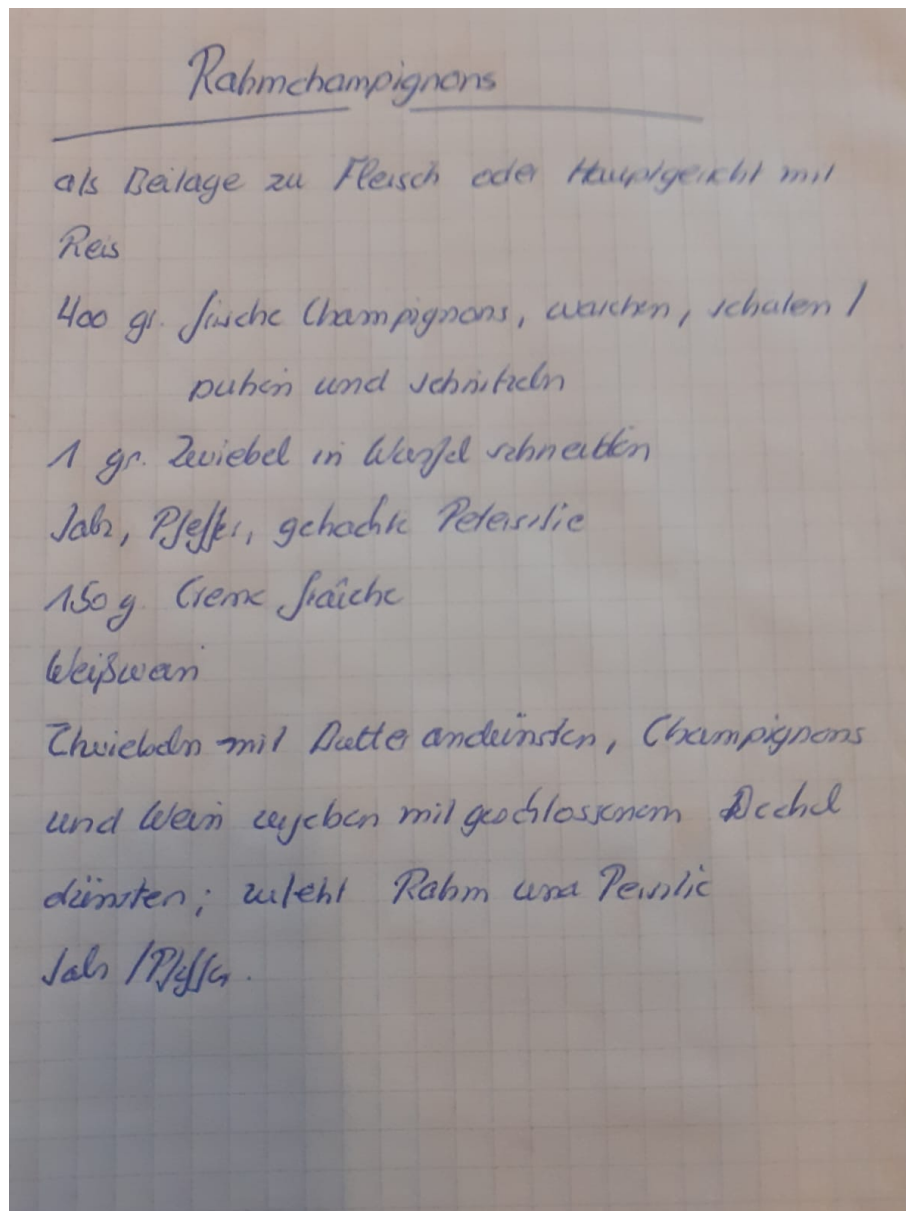 Rahmchampignons
als Beilage zu Fleisch oder Hauptgericht mit
Reis
400 gr. frische Champignons, waschen, schälen /
putzen und schnitzeln
1 gr. Zwiebel in Würfel schneiden
Salz, Pfeffer, gehackte Petersilie
150 g. Creme fraîche
Weißwein
Zwiebeln mit Butter andünsten, Champignons
und Wein zugeben mit geschlossenem Deckel
dünsten; zuletzt Rahm und Petersilie
Salz / Pfeffer.